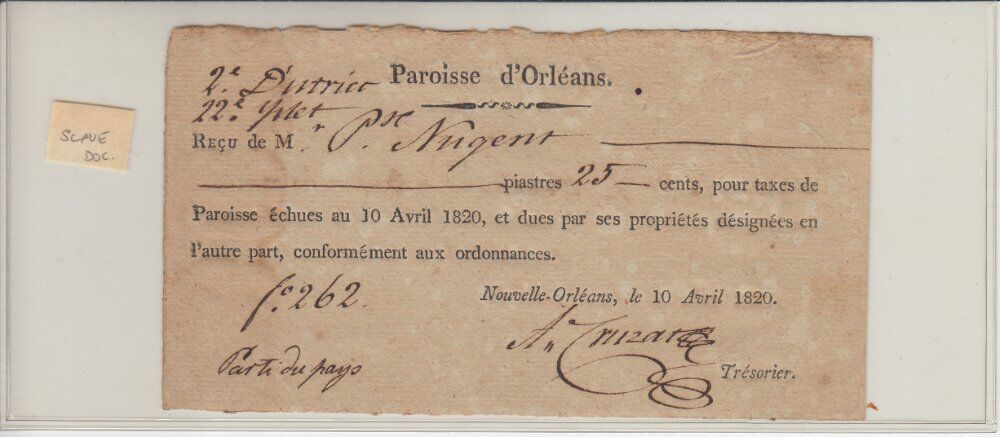 SLAVE
DOC.
2.e District Paroisse d'Orléans.
22.e
Reçu de M.r P.re Nugent
piastres 25 cents, pour taxes de
Paroisse échues au 10 Avril 1820, et dues par ses propriétés désignées en
l'autre part, conformément aux ordonnances.
f.o 262.
Nouvelle-Orléans, le 10 Avril 1820.
Cruzat
Parti du pays
Trésorier.